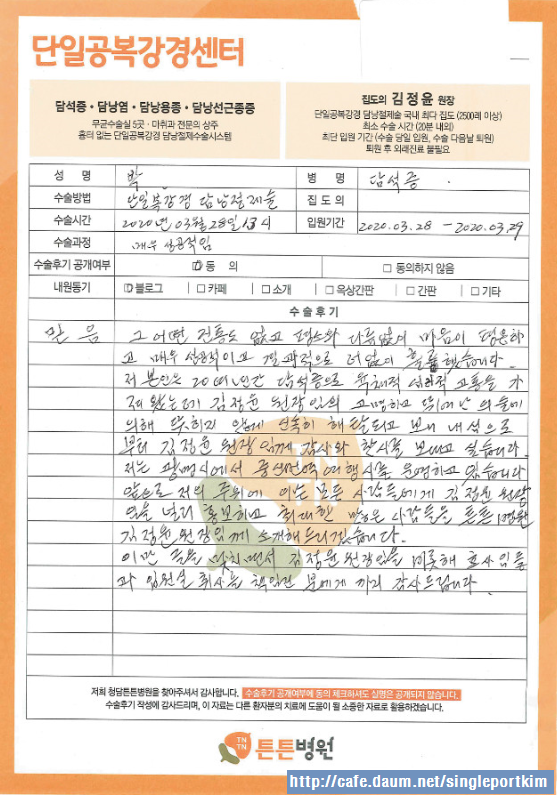 단일공복강경센터
담석증 · 담낭염 · 담낭용종 · 담낭선근종증
무균수술실 5곳 · 마취과 전문의 상주
흉터 없는 단일공복강경 담낭절제수술시스템
집도의 김정윤 원장
단일공복강경 담낭절제술 국내 최다 집도 (2500례 이상)
최소 수술 시간 (20분 내외)
최단 입원 기간 (수술 당일 입원, 수술 다음날 퇴원)
퇴원 후 외래진료 불필요
성 명 박 병 명 담석증.
수술방법 단일복강경 담낭절제술 집도의
수술시간 2020년 03월 28일 13시 입원기간 2020.03.28 - 2020.03.29
수술과정 매우 성공적임
수술후기 공개여부 ☑ 동 의 □ 동의하지 않음
내원동기 ☑ 블로그 □ 카페 □ 소개 □ 옥상간판 □ 간판 □ 기타
수술후기
믿음 그 어떤 진통도 없고 평소와 다름없이 마음이 평온하
고 매우 성공적이고 결과적으로 더없이 훌륭했습니다.
저 본인은 20여년간 담석증으로 육체적 심리적 고통을 가
져왔는데 김정윤 원장님의 고명하고 뛰어난 의술에
의해 말끔히 해 진심으로
부터 김정윤 원장님께 감사와 찬사를 보내고 싶습니다.
저는 광명시에서 여행사를 운영하고 있습니다
앞으로 저의 주위에 있는 모든 사람들에게 김정윤 원장
님을 널리 홍보하고 최대한 많은 사람들을 튼튼병원
김정윤 원장님께 소개해드리겠습니다.
이만 글을 마치면서 김정윤 원장님을 비롯해 간호사님들
과 입원실 취사를 책임진 분에게 까지 감사드립니다.
저희 청담튼튼병원을 찾아주셔서 감사합니다. 수술후기 공개여부에 동의 체크하셔도 실명은 공개되지 않습니다.
수술후기 작성에 감사드리며, 이 자료는 다른 환자분의 치료에 도움이 될 소중한 자료로 활용하겠습니다.
TN TN 튼튼병원
http://cafe.daum.net/singleportkim